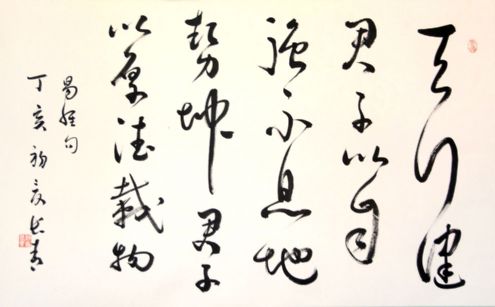 天行健
君子以自
强不息地
势坤君子
以厚德载物
易经句
丁亥初夏